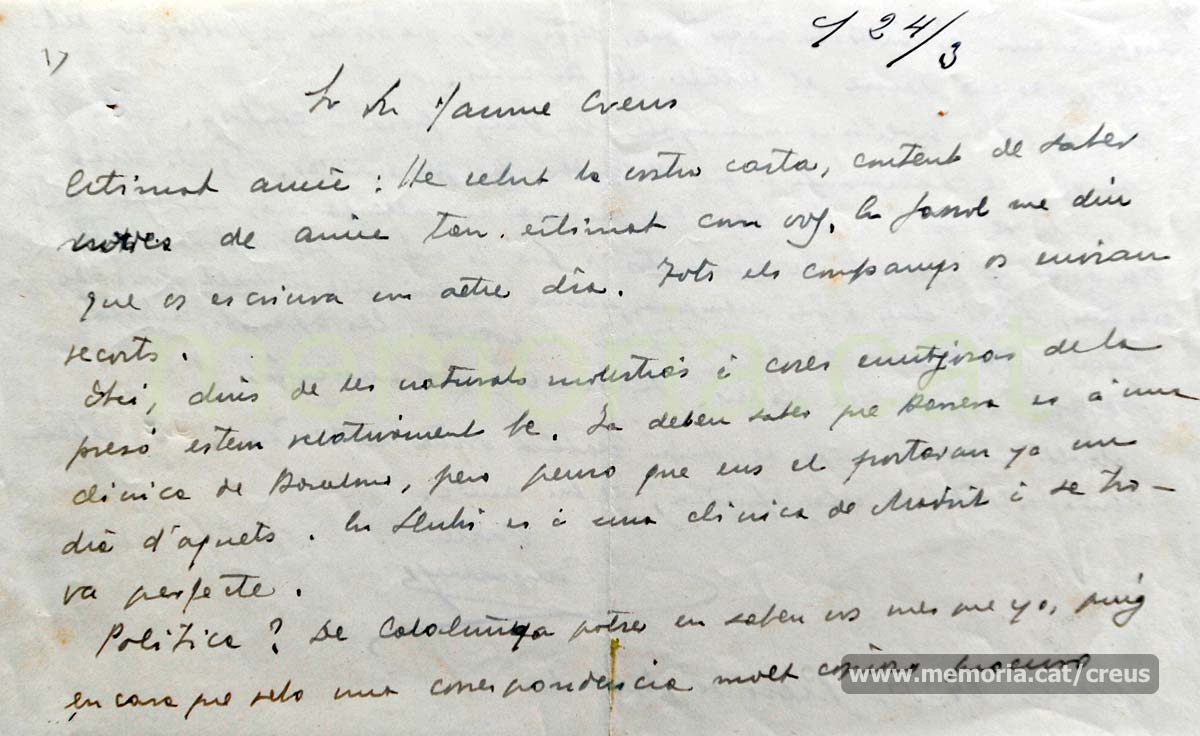 1)
S/ 24/3
Sr Dn Jaume Creus
Estimat amic: He rebut la vostra carta, content de saber
noticies de amic tan estimat com vos. En Gassol me diu
que os escriura un altre dia. Tots els companys os envian
recorts.
Aci, dins de les naturals molesties i coses enutjosas de la
presó estem relativament be. Ja deben saber que Barrera es á una
clinica de Barcelona, pero penso que ens el portaran ya un
dia d'aquets. En Lluhi es á una clinica de Madrit i se tro-
va perfecte.
Politica? De Catalunya potser en sabeu vos mes que yo, puig
encara que rebo una correspondencia molt copiosa
www.memoria.cat/creus
memoria.cat